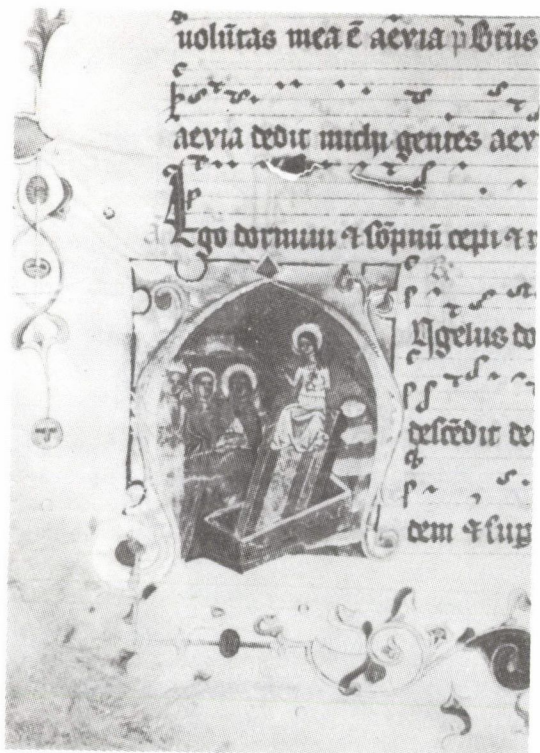 uolūtas mea ē aevia
aevia dedit michi gentes aev
Ego dormiui ⁊ sōpnū cepi ⁊ r
Ngelus do
descēdit de
dem ⁊ sup